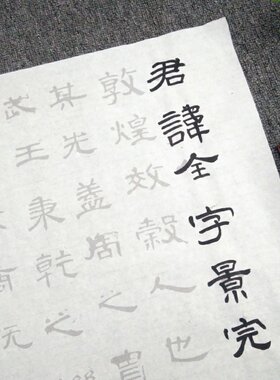 君諱全字景完
敦煌效穀人也
其先蓋周之胄
武王秉乾之